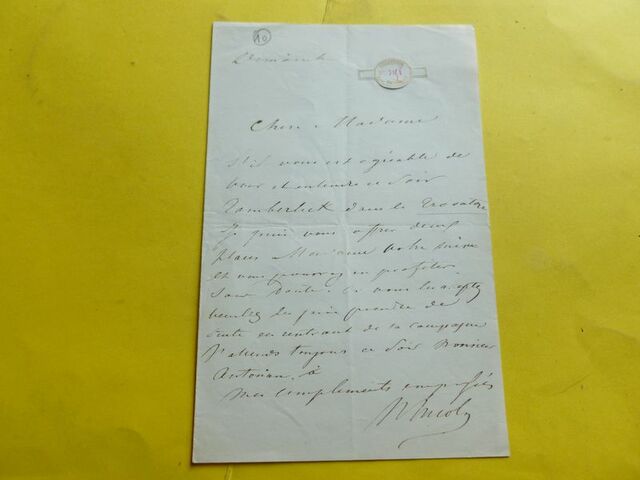 10
Chère Madame
S'il vous est agréable de
voir et entendre ce Soir
Tamberlick dans le Trovatore
Je puis vous offrir deux
places Madame votre
et vous pourrez en profiter
Sans doute. Si vous les
veuillez les faire prendre de
suite en rentrant de la campagne
J'attends toujours ce Soir Monsieur
à
Mes compliments empressés